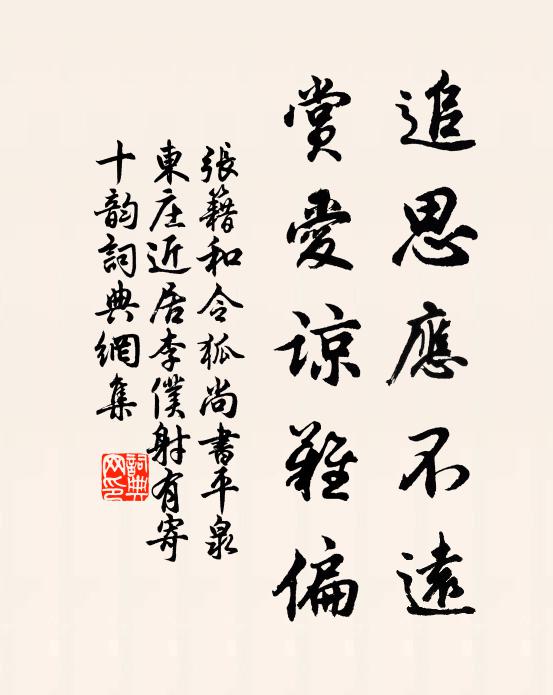 追思應不遠
賞愛諒難偏
張籍和令狐尚書平泉
東庄近居李僕射有寄
十韵詞典網集
詞典
网印